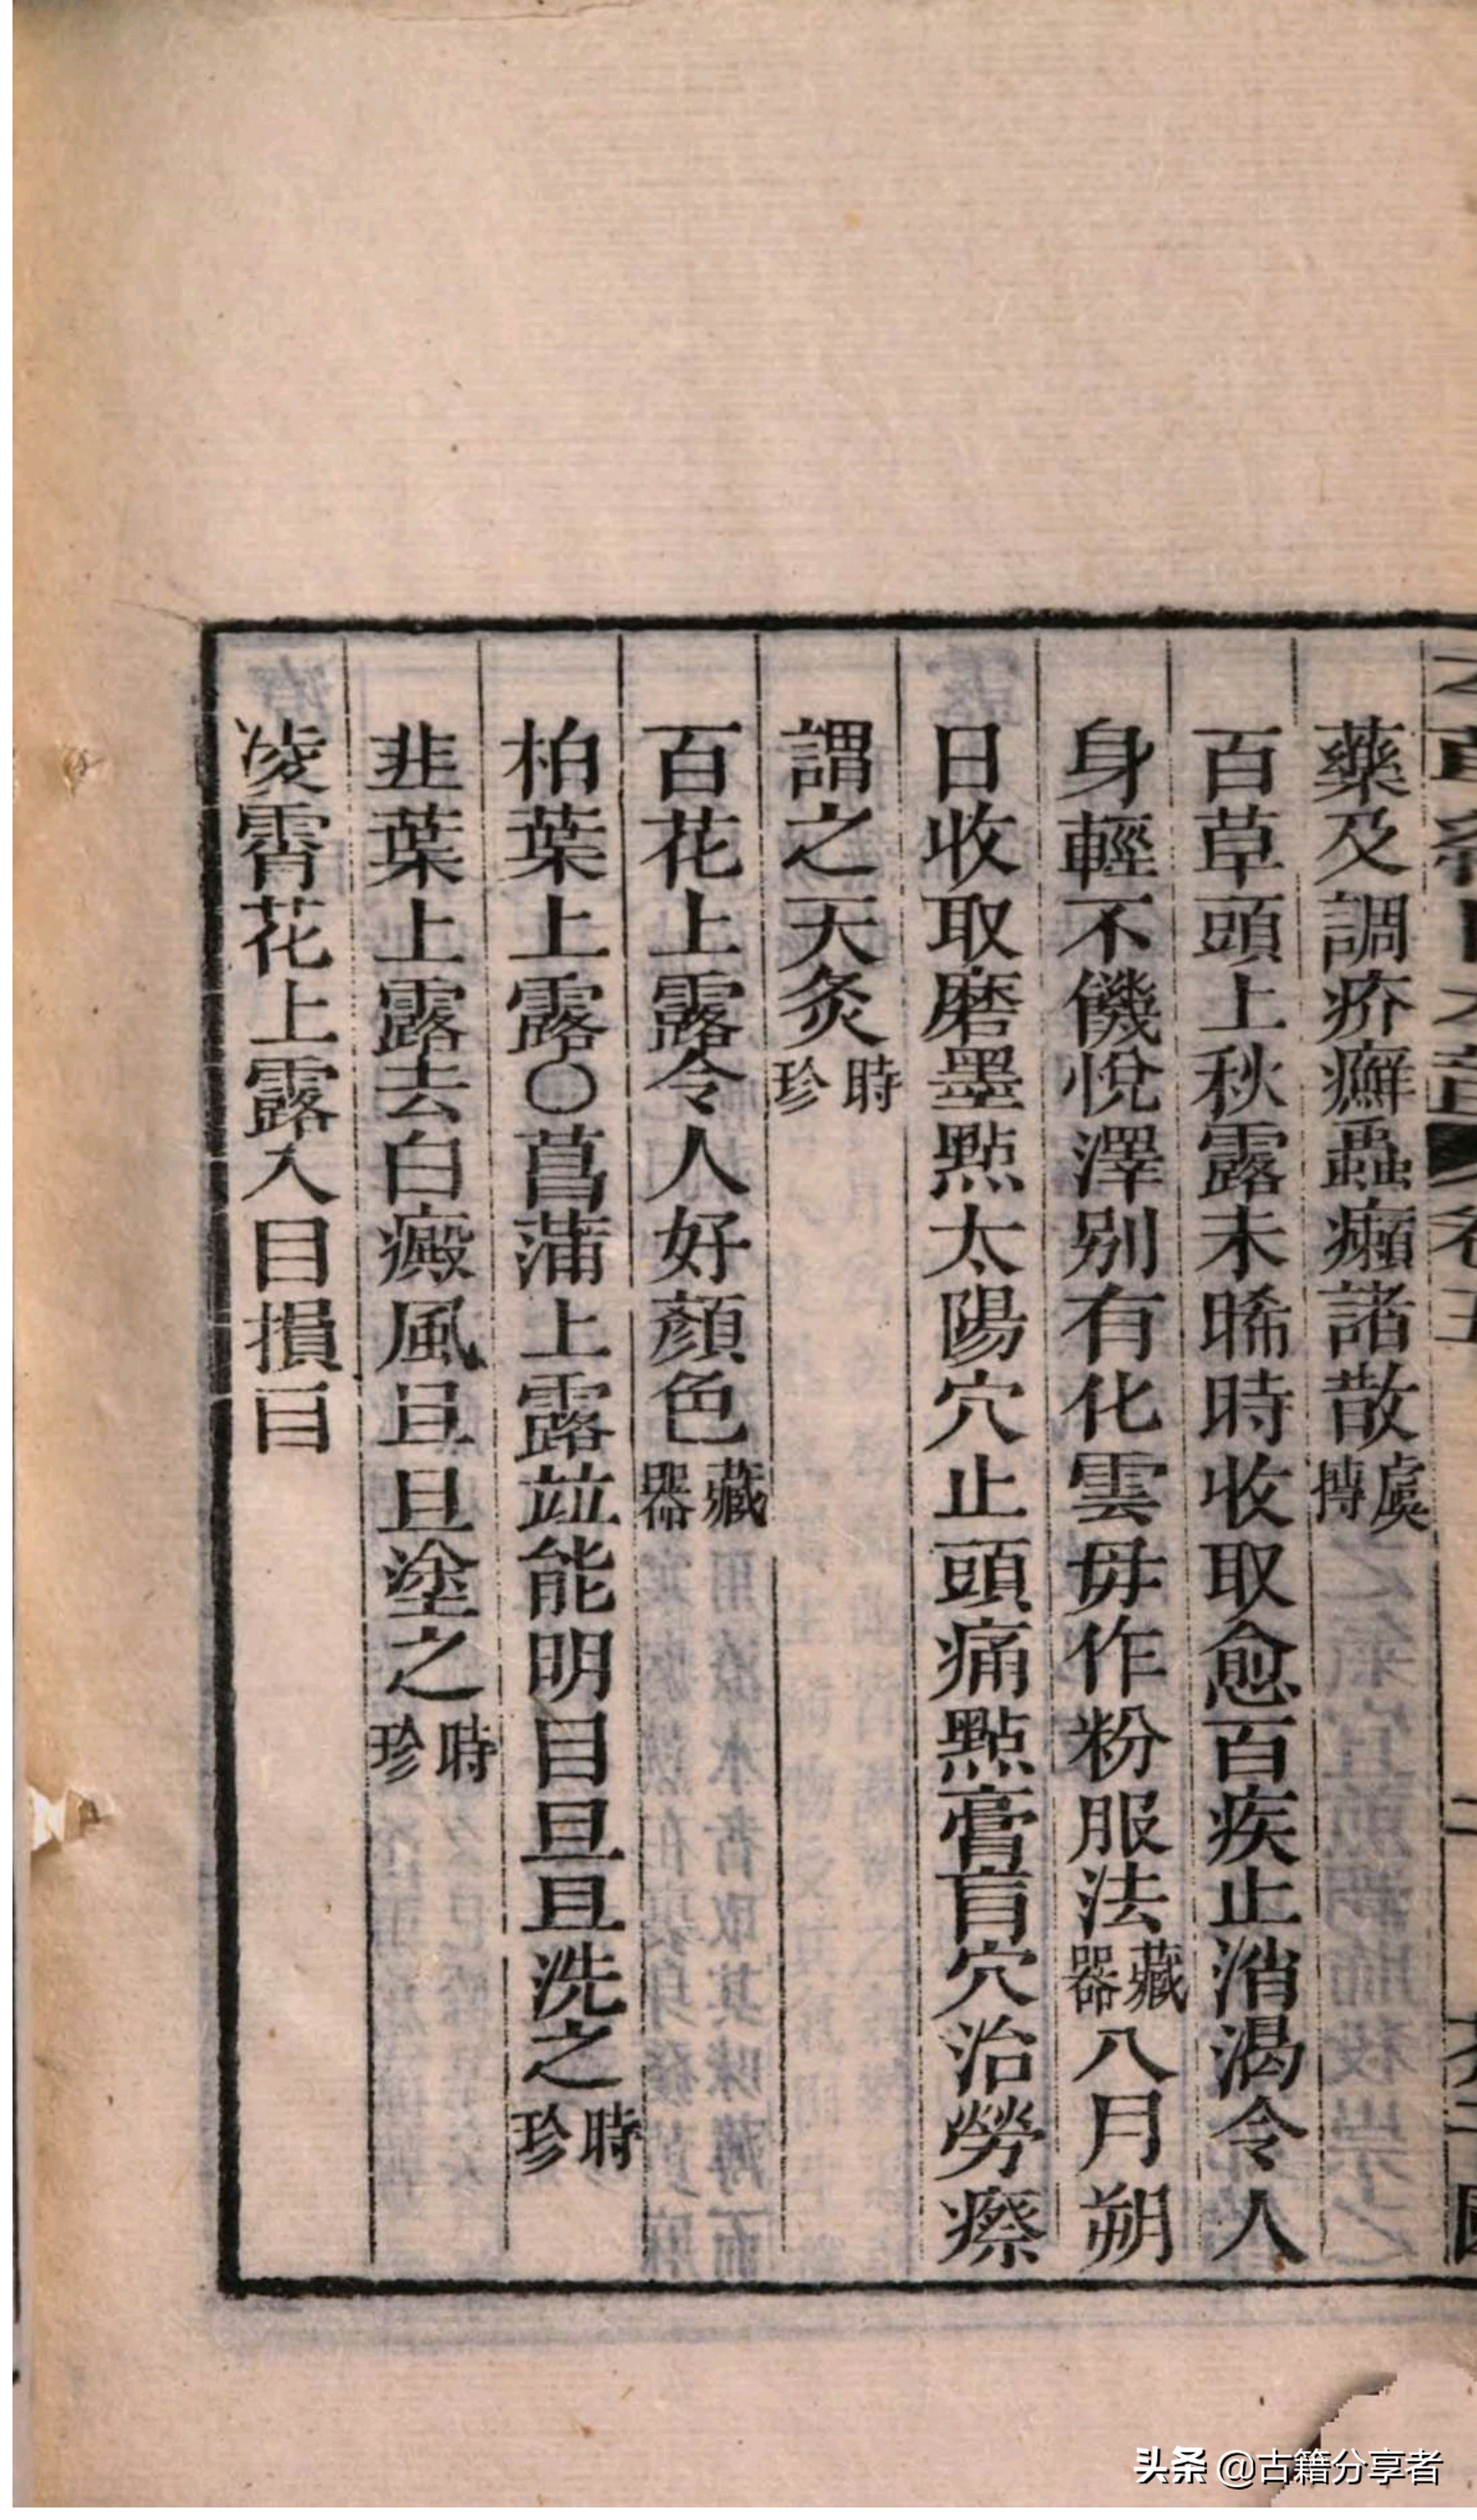 藥及調疥癬蟲癩諸散虞摶
百草頭上秋露未晞時收取愈百疾止消渴令人
身輕不饑悅澤別有化雲毋作粉服法藏器八月朔
日收取磨墨點太陽穴止頭痛點膏肓穴治勞瘵
謂之天灸時珍
百花上露令人好顏色藏器
柏葉上露○菖蒲上露竝能明目旦旦洗之時珍
韭葉上露去白癜風旦旦塗之時珍
凌霄花上露入目損目
头条 @古籍分享者